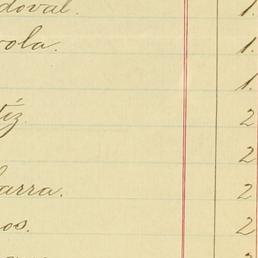 doval. 1.
rola. 1.
1.
tiz. 2
2
barra. 2
os. 2